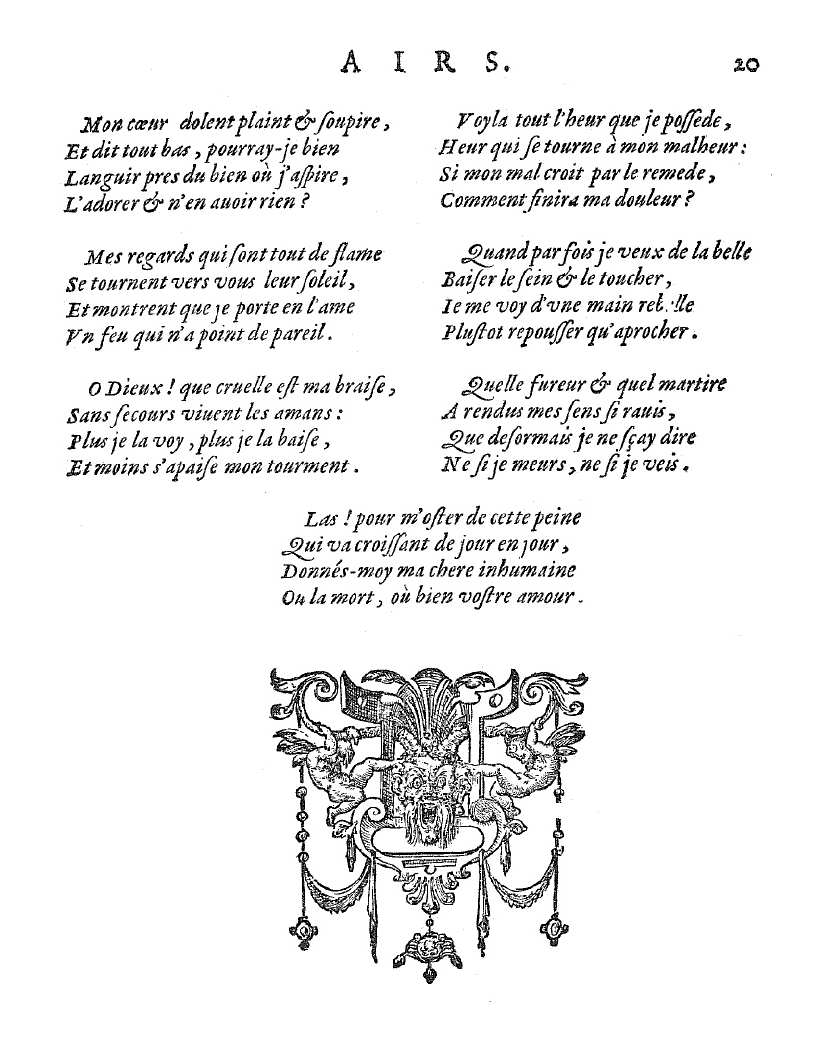 AIRS.
20
Mon cœur dolent plaint & ſoupire,
Et dit tout bas, pourray-je bien
Languir pres du bien où j'aſpire,
L'adorer & n'en auoir rien ?
Mes regards qui ſont tout de flame
Se tournent vers vous leur ſoleil,
Et montrent que je porte en l'ame
Vn feu qui n'a point de pareil.
O Dieux ! que cruelle eſt ma braiſe,
Sans ſecours viuent les amans :
Plus je la voy, plus je la baiſe,
Et moins s'apaiſe mon tourment.
Voyla tout l'heur que je poſſede,
Heur qui ſe tourne à mon malheur :
Si mon mal croit par le remede,
Comment finira ma douleur ?
Quand par fois je veux de la belle
Baiſer le ſein & le toucher,
Ie me voy d'vne main
Pluſtot repouſſer qu'aprocher.
Quelle fureur & quel martire
A rendus mes ſens ſi rauis,
Que deſormais je ne ſçay dire
Ne ſi je meurs, ne ſi je veis.
Las ! pour m'oſter de cette peine
Qui va croiſſant de jour en jour,
Donnés-moy ma chere inhumaine
Ou la mort, où bien voſtre amour.